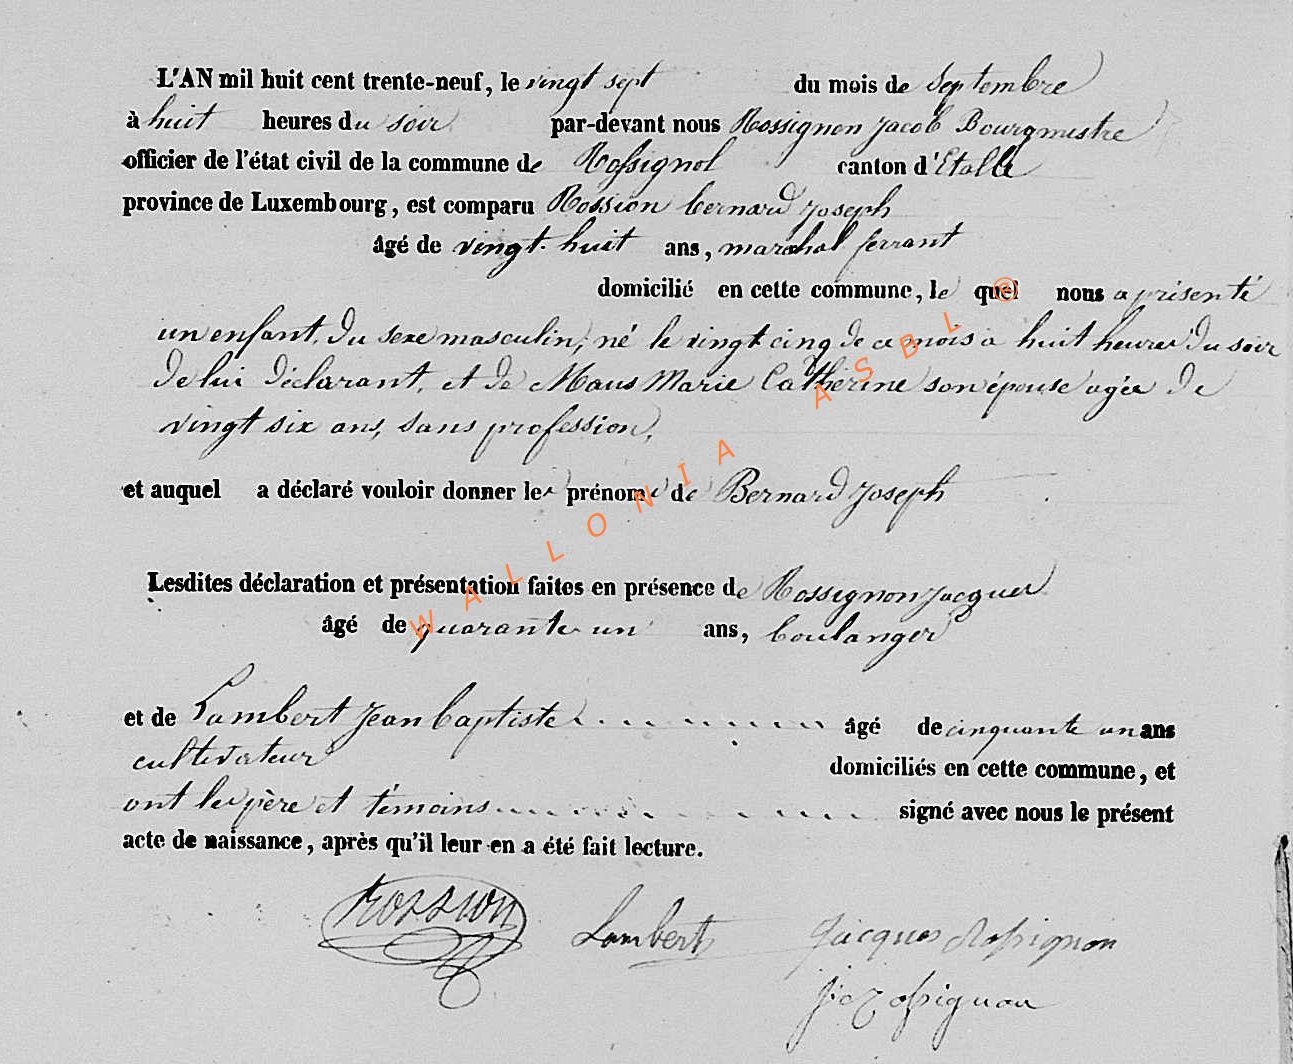 L'AN mil huit cent trente-neuf, le vingt sept du mois de Septembre
à huit heures du soir par-devant nous Rossignon Jacob Bourgmestre
officier de l'état civil de la commune de Rossignol canton d'Etalle
province de Luxembourg, est comparu Rossion bernard Joseph
âgé de vingt-huit ans, maréchal ferrant
domicilié en cette commune, le quel nous a présenté
un enfant du sexe masculin, né le vingt cinq de ce mois à huit heures du soir
de lui déclarant, et de Maus Marie Catherine son épouse agée de
vingt six ans, sans profession,
et auquel a déclaré vouloir donner les prénoms de Bernard Joseph
Lesdites déclaration et présentation faites en présence de Rossignon Jacques
âgé de quarante un ans, boulanger
et de Lambert Jean baptiste âgé de cinquante un ans
cultivateur domiciliés en cette commune, et
ont les père et témoins signé avec nous le présent
acte de naissance, après qu'il leur en a été fait lecture.
Rossion Lambert Jacques Rossignon
J. Rossignon
WALLONIA ASBL @